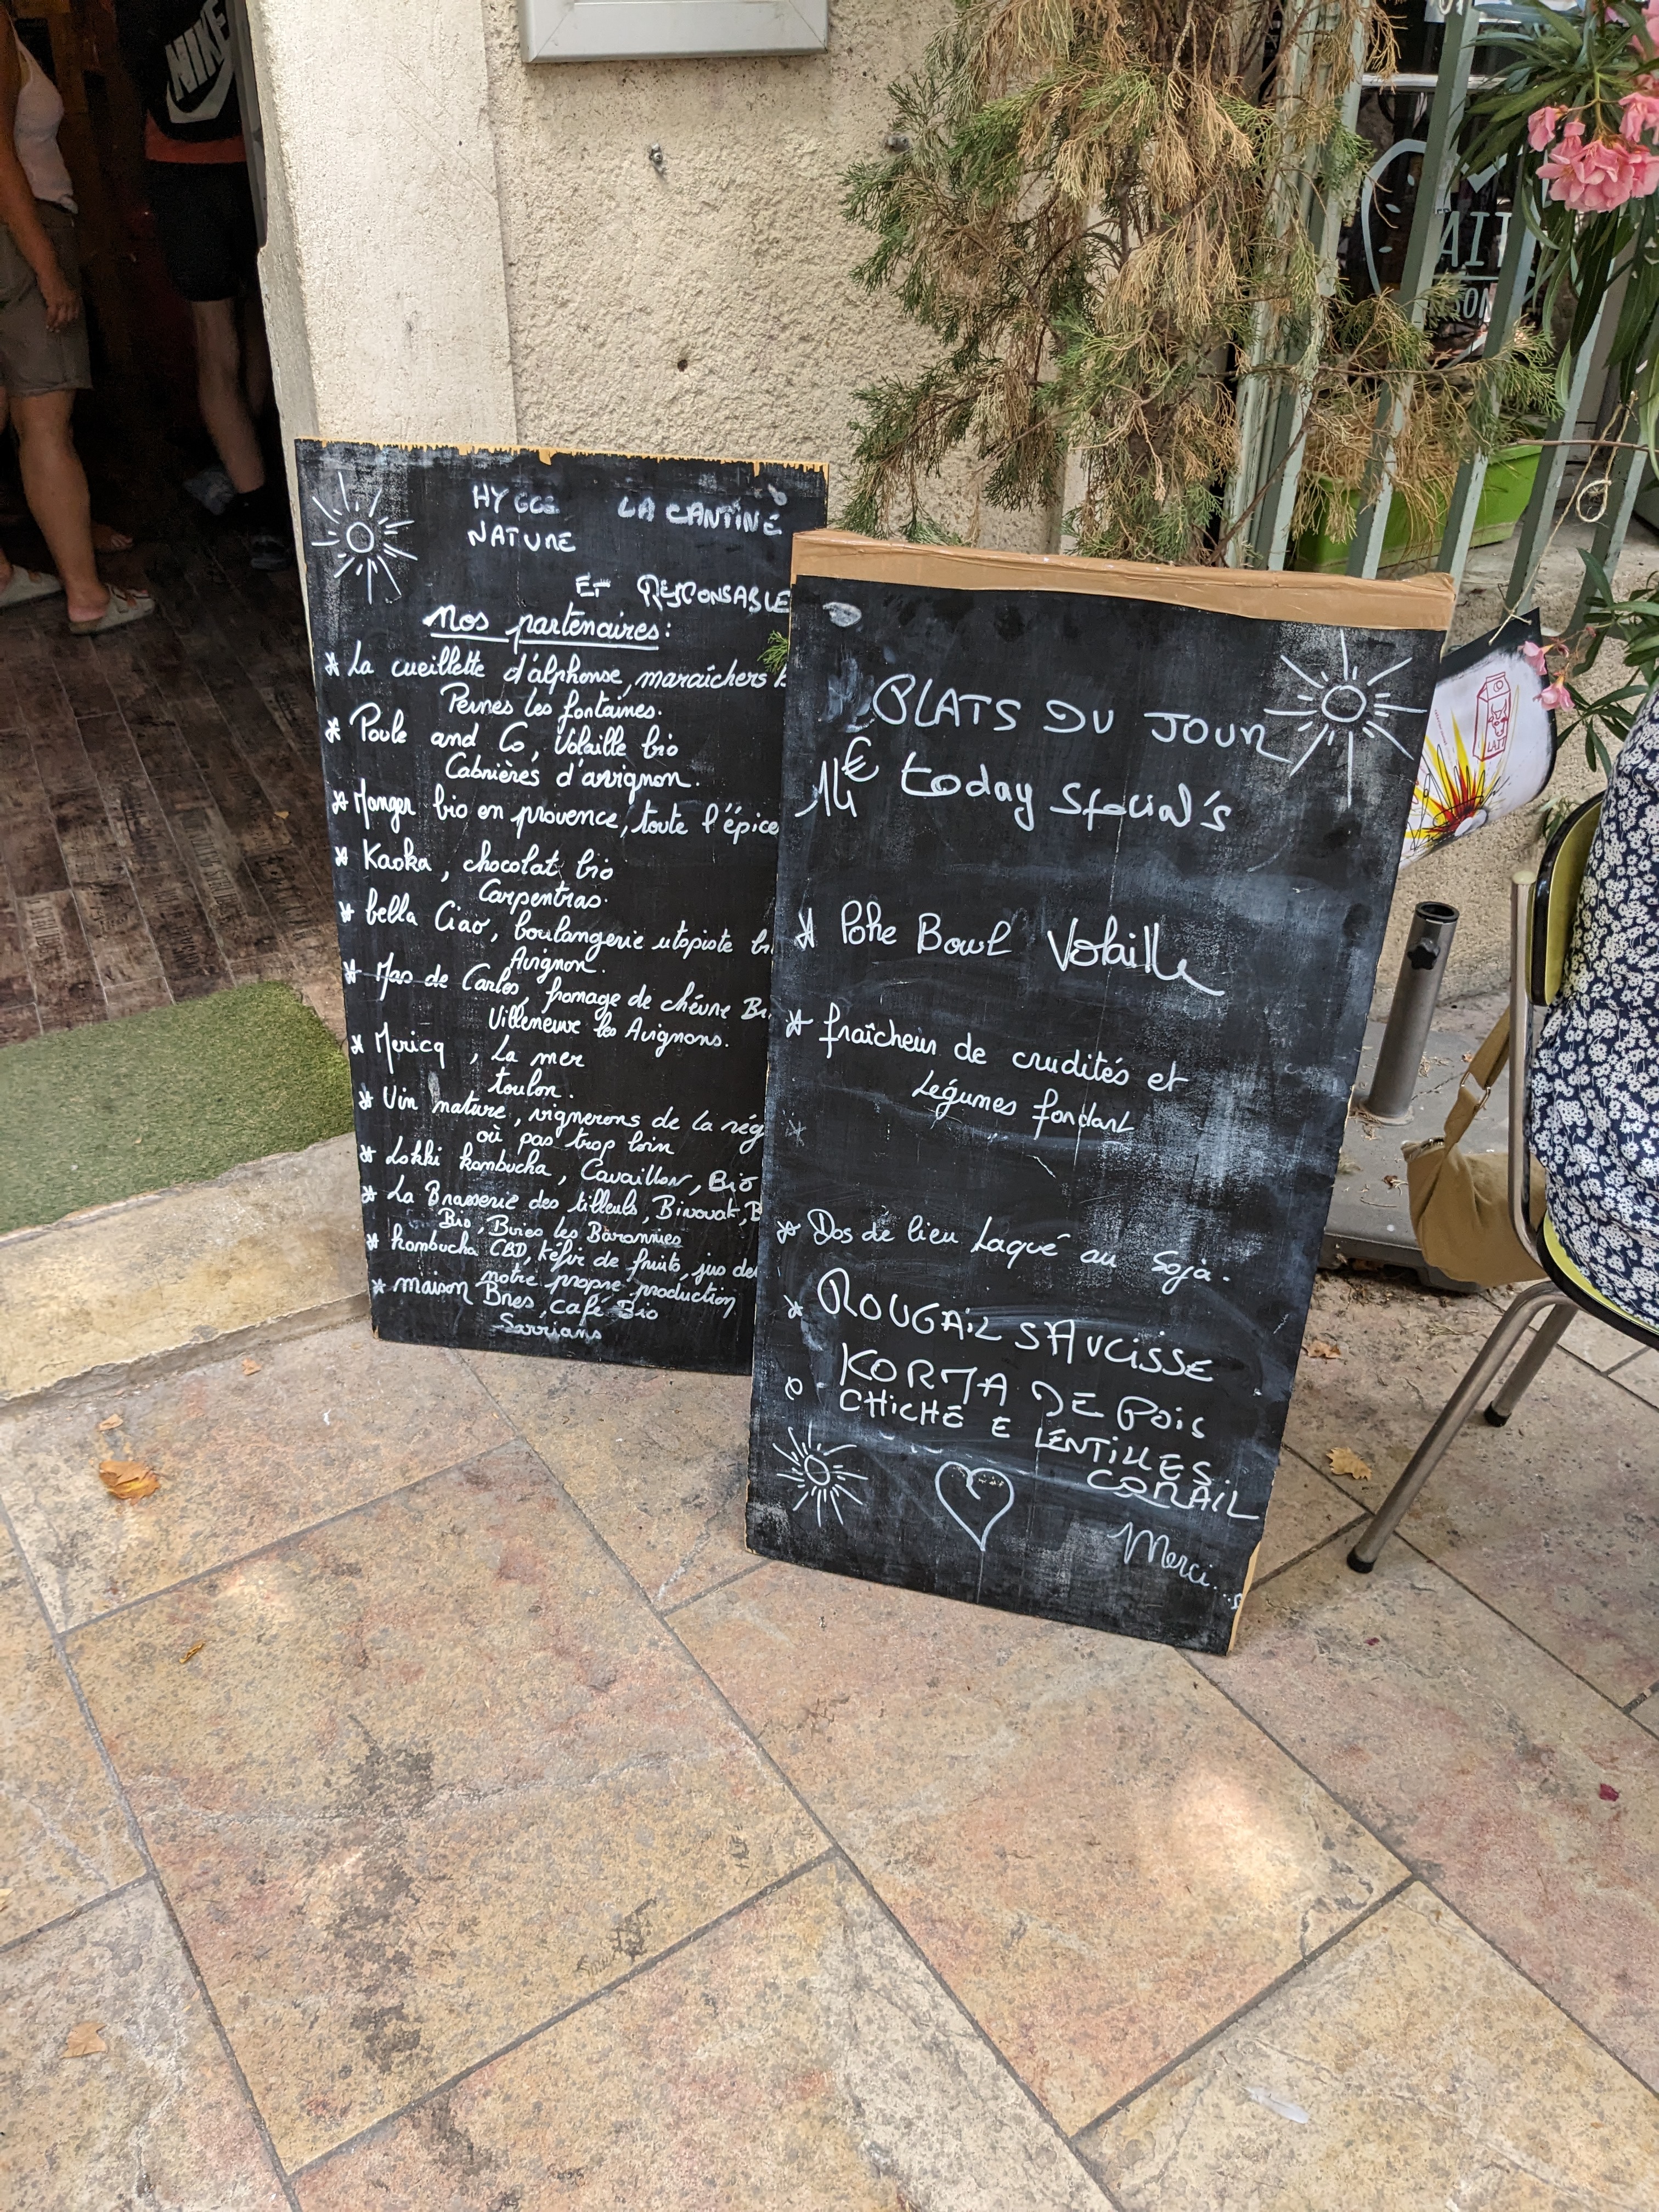 NIKE
HYGGE LA CANTINE
NATURE
ET RESPONSABLE
Nos partenaires:
* La cueillette d'alphonse, maraîchers
Pernes les fontaines.
* Poule and Co, Volaille bio
Cabrières d'avignon.
* Manger bio en provence, toute l'épice
* Kaoka, chocolat bio
Carpentras.
* bella Ciao, boulangerie utopiste
Avignon.
* Mas de Carlos, fromage de chévre
Villeneuve les Avignons.
* Mericq, La mer
toulon.
* Vin nature, vignerons de la rég
où pas trop loin
* Lokki kombucha, Cavaillon, Bio
* La Brasserie des tilleuls,
Bio, Bures les Baronnies
* kombucha CBD, kéfir de fruits, jus de
notre propre production
* maison Bres, café Bio
Sarrians
PLATS DU JOUR
14€ today Special's
* Poke Bowl Volaille
* fraîcheur de crudités et
Légumes fondant
* Dos de lieu Laqué au Soja.
* ROUGAIL SAUCISSE
KORMA DE POIS
CHICHE E LENTILLES.
CORAIL
Merci...s
LAIT